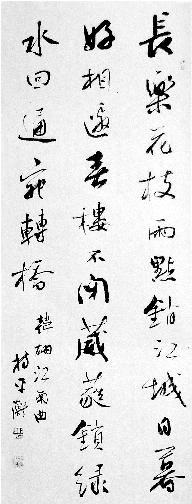 長樂花枝雨點銷江城日暮
好相邀春樓不閉葳蕤鎖綠
水回通宛轉橋
韓翃江南曲